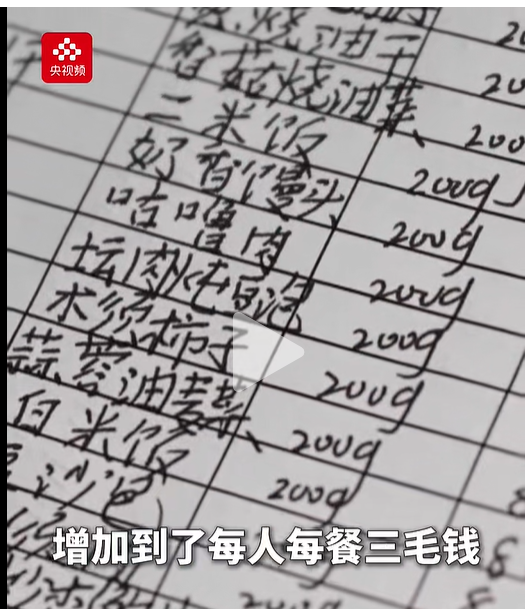 央视频
烧油
200
香菇烧油菜
200
二米饭
200
奶香馒头
200g
咕噜肉
200g
坛肉炖豆泡
200g
木须柿子
200g
蒜蓉油麦菜
200g
白米饭
200g
豆沙包
200g
增加到了每人每餐三毛钱